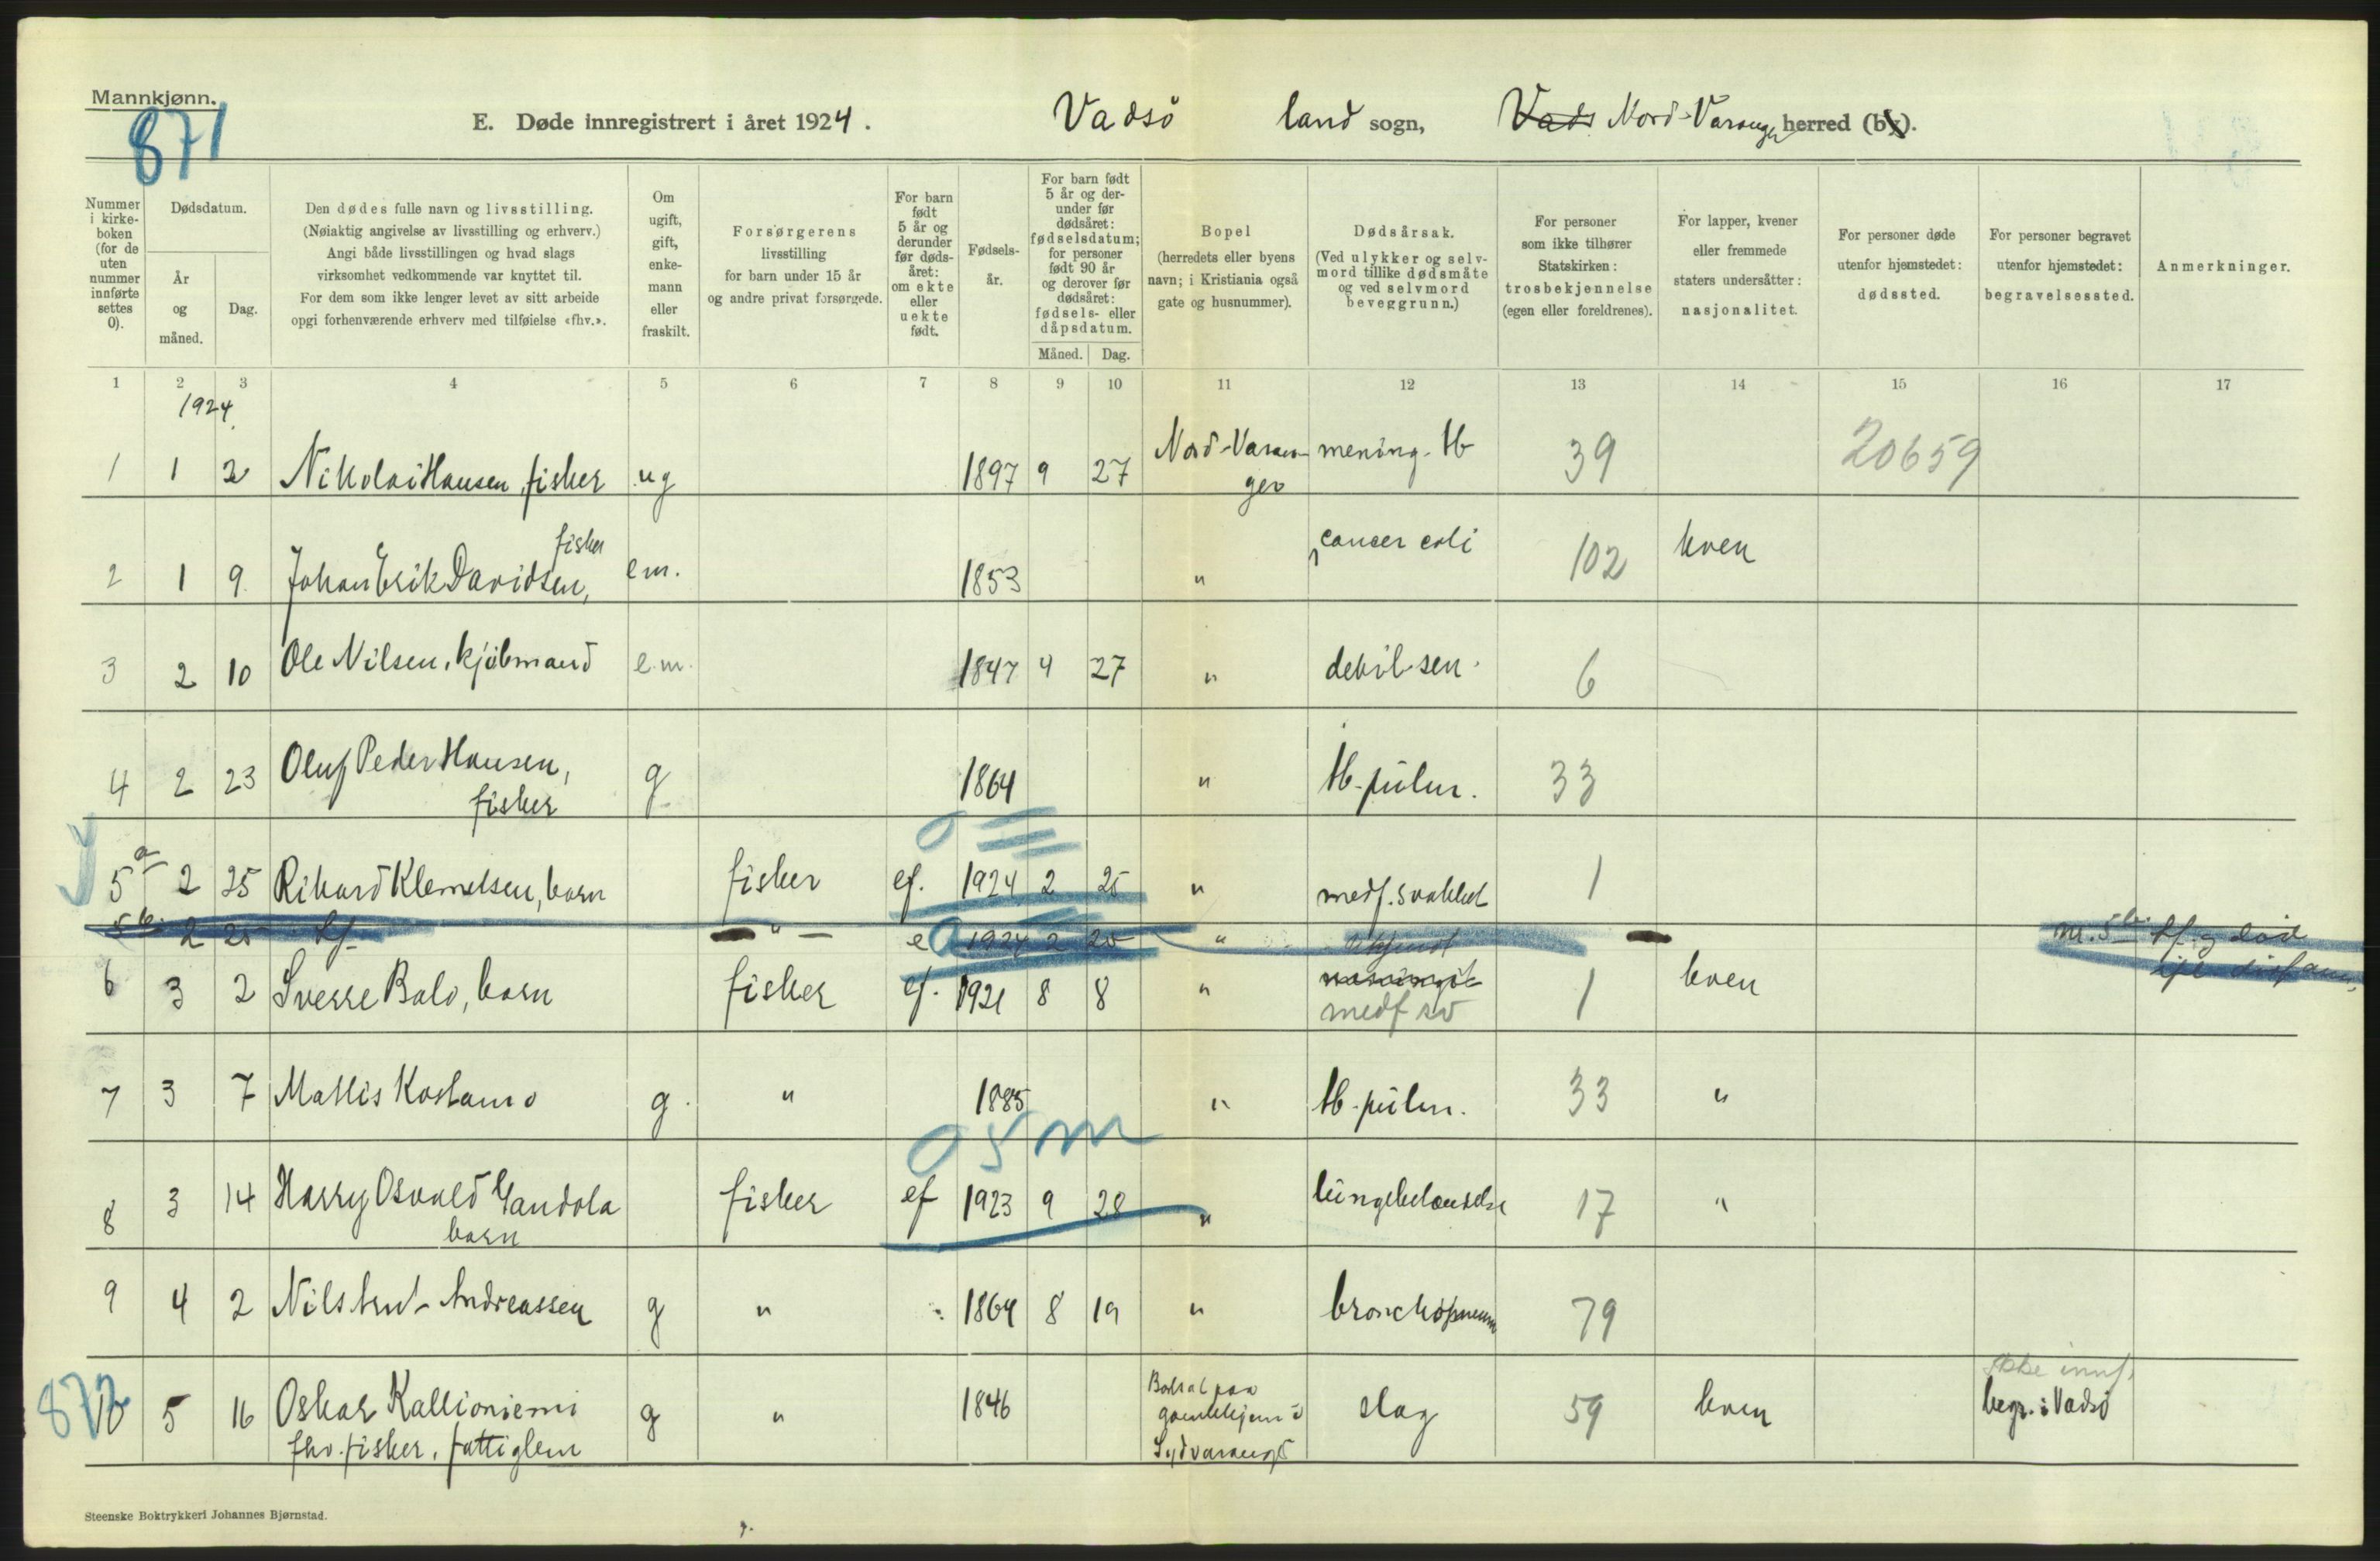 Mannkjønn.
871
E. Døde innregistrert i året 1924. Vadsö land sogn, Vads Nord-Varanger herred (by).
Nummer i kirkeboken (for de uten nummer innførte settes 0).
Dødsdatum.
År og måned.
Dag.
Den dødes fulle navn og livsstilling.
(Nøiaktig angivelse av livsstilling og erhverv.)
Angi både livsstillingen og hvad slags
virksomhet vedkommende var knyttet til.
For dem som ikke lenger levet av sitt arbeide
opgi forhenværende erhverv med tilføielse «fhv.».
Om ugift, gift, enkemann eller fraskilt.
Forsørgerens
livsstilling
for barn under 15 år
og andre privat forsørgede.
For barn født 5 år og derunder før dødsåret: om ekte eller uekte født.
Fødselsår.
For barn født 5 år og derunder før dødsåret: fødselsdatum; for personer født 90 år og derover før dødsåret: fødsels- eller dåpsdatum.
Måned.
Dag.
Bopel
(herredets eller byens
navn; i Kristiania også
gate og husnummer).
Dødsårsak.
(Ved ulykker og selvmord tillike dødsmåte og ved selvmord beveggrunn.)
For personer
som ikke tilhører
Statskirken:
trosbekjennelse
(egen eller foreldrenes).
For lapper, kvener
eller fremmede
staters undersåtter:
nasjonalitet.
For personer døde
utenfor hjemstedet:
dødssted.
For personer begravet
utenfor hjemstedet:
begravelsessted.
Anmerkninger.
1 2 3 4 5 6 7 8 9 10 11 12 13 14 15 16 17
1924.
1 1 2 Nikolai Hansen, fisker ug 1897 9 27 Nord-Varanger mening. tb 39 20659
2 1 9 Johan Erik Davidsen, fisker em. 1853 " cancer coli 102 kven
3 2 10 Ole Nilsen, kjöbmand e.m. 1847 4 27 " debil. sen. 6
4 2 23 Oluf Peder Hansen, fisker g 1864 " tb. pulm. 33
5 a 2 25 Rikard Klemetsen, barn fisker ef. 1924 2 25 " medf. svakhet 1
5 b. 2 25 " 1924 2 25 "
nr. 5 b.
6 3 2 Sverre Balo, barn fisker ef. 1921 8 8 " medf sv 1 kven
7 3 7 Mattis Kostamo g. " 1885 " tb. pulm. 33 "
0 5 m
8 3 14 Harry Osvald barn fisker ef 1923 9 28 " lungebetændelse 17 "
9 4 2 Nils Andreassen g " 1864 8 19 " bronchopneum 79
872
10 5 16 Oskar Kallioniemi g " 1846 slag 59 kven begr. i Vadsö
fhv. fisker, fattiglem
Sydvaranger
Steenske Boktrykkeri Johannes Bjørnstad.